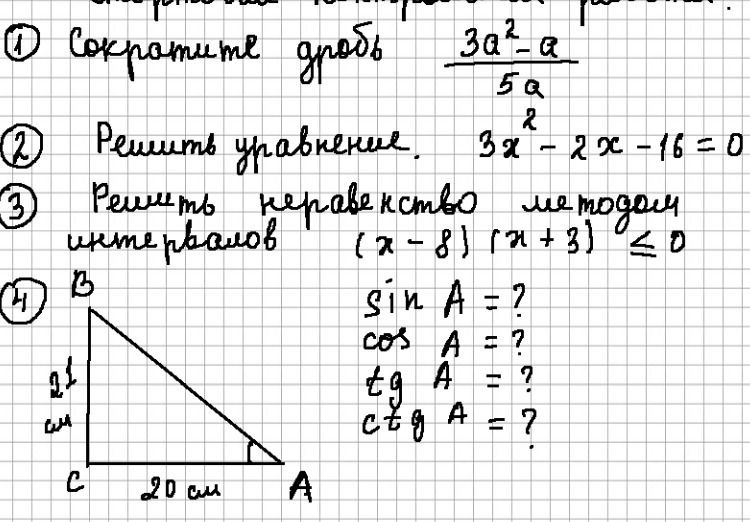 ① Сократите дробь (3a² - a) / (5a)
② Решить уравнение. 3x² - 2x - 16 = 0
③ Решить неравенство методом
интервалов (x - 8) (x + 3) ≤ 0
④ B
sin A = ?
cos A = ?
21 tg A = ?
см ctg A = ?
C 20 см A